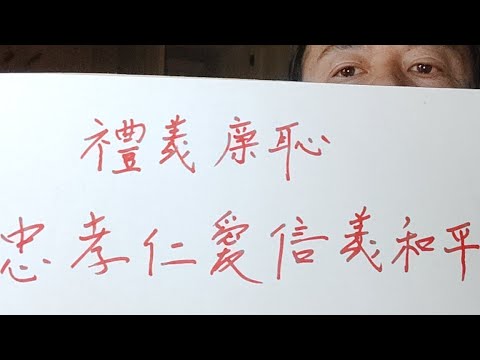 禮義廉恥
忠孝仁愛信義和平